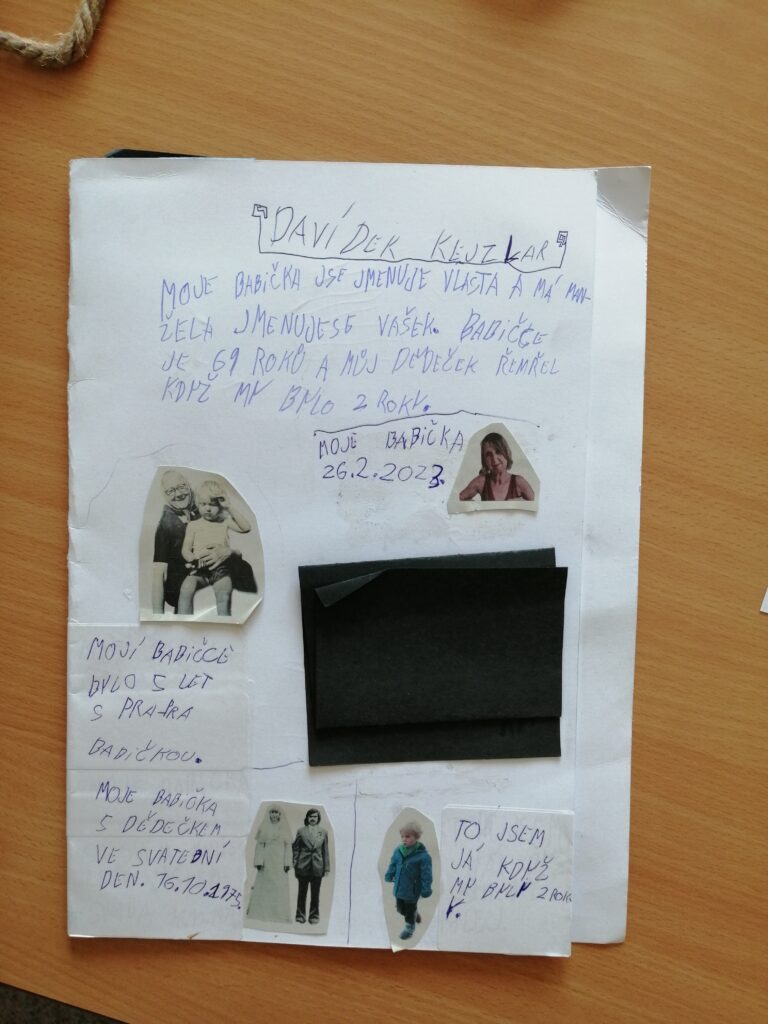 DAVÍDEK KEJZLAR
MOJE BABIČKA JSE JMENUJE VLASTA A MÁ MAN-
ŽELA JMENUJESE VAŠEK. BABIČCE
JE 69 ROKŮ A MŮJ DĚDEČEK ŘEMŘEL
KDYŽ MY BYLO 2 ROKY.
MOJE BABIČKA
26.2.2023.
MOJÍ BABIČCE
BYLO 5 LET
S PRAPRA
BABIČKOU.
MOJE BABIČKA
S DĚDEČKEM
VE SVATEBNÍ
DEN. 16.10.1975.
TO JSEM
JÁ KDYŽ
MY BYLY 2 ROK
Y.